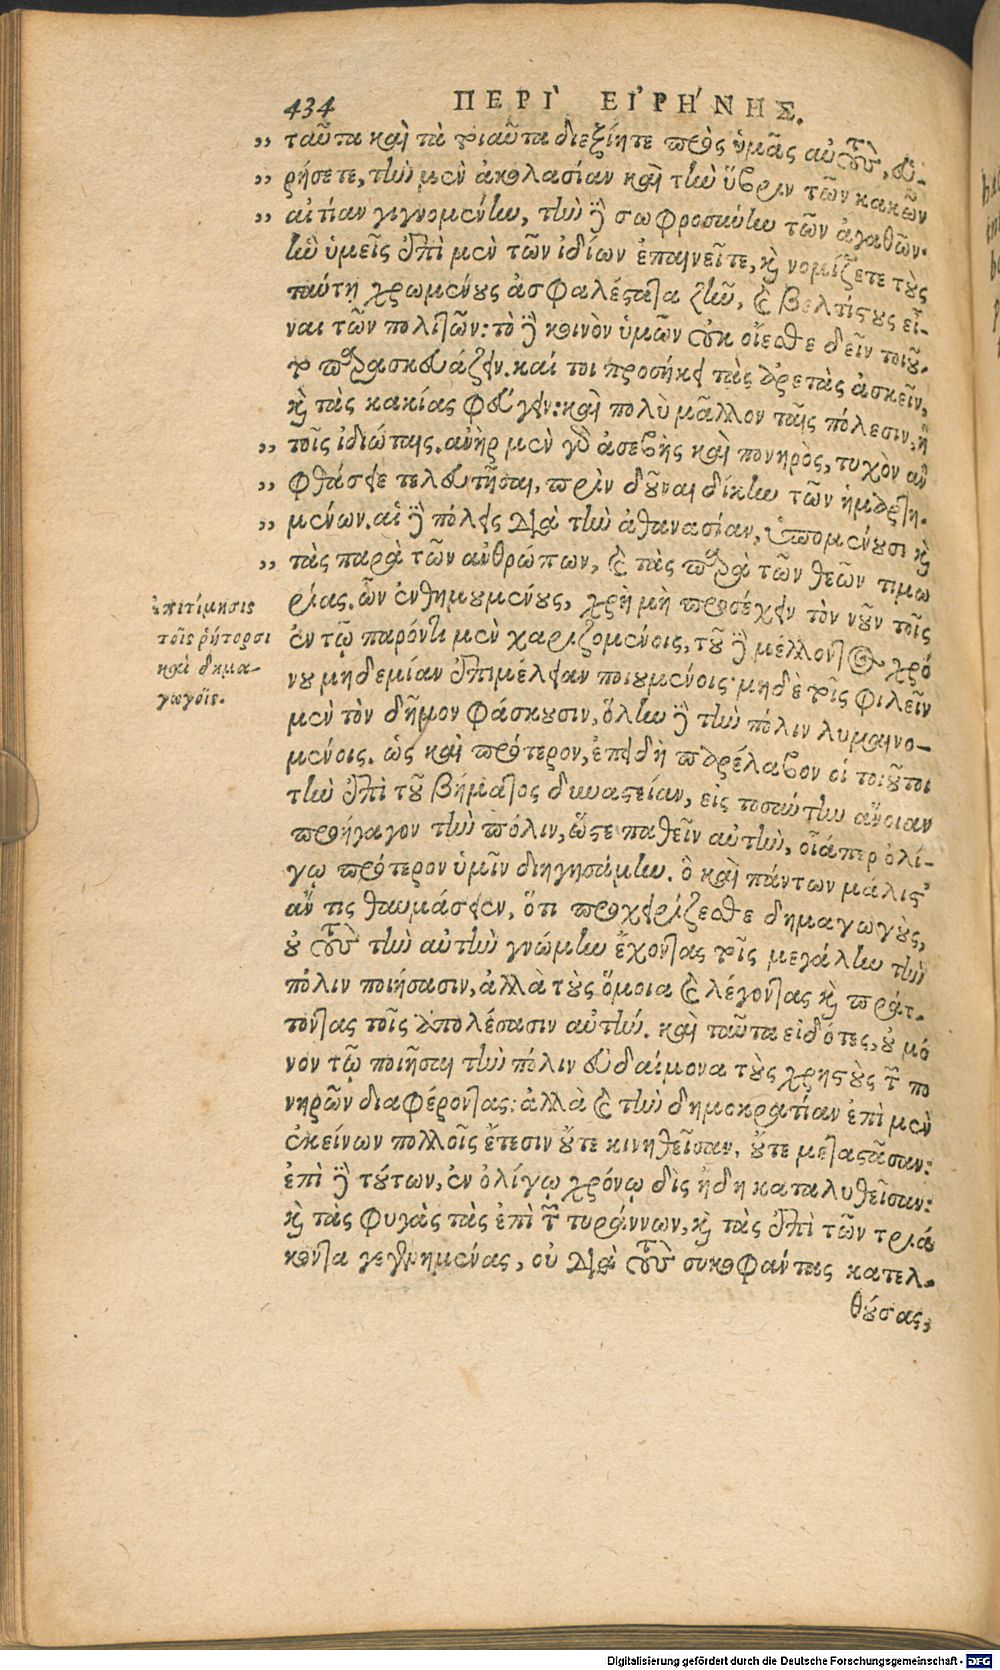 434 ΠΕΡΙ ΕΙΡΗΝΗΣ.
,, ταῦτα καὶ τὰ τοιαῦτα διεξίητε πρὸς ὑμᾶς αὐτοὺς, εὑ-
,, ρήσετε, τὴν μὲν ἀκολασίαν καὶ τὴν ὕβριν τῶν κακῶν
,, αἰτίαν γιγνομένην, τὴν δὲ σωφροσύνην τῶν ἀγαθῶν.
ἣν ὑμεῖς ἐπὶ μὲν τῶν ἰδίων ἐπαινεῖτε, καὶ νομίζετε τοὺς
ταύτῃ χρωμένους ἀσφαλέστατα ζῆν, καὶ βελτίστους εἶ-
ναι τῶν πολιτῶν: τὸ δὲ κοινὸν ὑμῶν οὐκ οἴεσθε δεῖν τοιοῦ-
το παρασκευάζειν. καί τοι προσήκει τὰς ἀρετὰς ἀσκεῖν,
καὶ τὰς κακίας φεύγειν: καὶ πολὺ μᾶλλον ταῖς πόλεσιν, ἢ
,, τοῖς ἰδιώταις. ἀνὴρ μὲν γὰρ ἀσεβὴς καὶ πονηρὸς, τυχὸν ἂν
,, φθάσειε τελευτῆσαι, πρὶν δοῦναι δίκην τῶν ἡμαρτη-
,, μένων. αἱ δὲ πόλεις διὰ τὴν ἀθανασίαν, ὑπομένουσι καὶ
,, τὰς παρὰ τῶν ἀνθρώπων, καὶ τὰς παρὰ τῶν θεῶν τιμω
ρίας. ὧν ἐνθημουμένους, χρὴ μὴ προσέχειν τὸν νοῦν τοῖς
ἐν τῷ παρόντι μὲν χαριζομένοις, τοῦ δὲ μέλλοντος χρό
νου μηδεμίαν ἐπιμέλειαν ποιουμένοις· μηδὲ τοῖς φιλεῖν
μὲν τὸν δῆμον φάσκουσιν, ὅλην δὲ τὴν πόλιν λυμαινο-
μένοις. ὡς καὶ πρότερον, ἐπειδὴ παρέλαβον οἱ τοιοῦτοι
τὴν ἐπὶ τοῦ βήματος δυναστείαν, εἰς τοσαύτην ἄνοιαν
προήγαγον τὴν πόλιν, ὥστε παθεῖν αὐτὴν, οἷάπερ ὀλί-
γῳ πρότερον ὑμῖν διηγησάμην. ὃ καὶ πάντων μάλιστ'
ἄν τις θαυμάσειεν, ὅτι προχειρίζεσθε δημαγωγοὺς,
οὐ τοὺς τὴν αὐτὴν γνώμην ἔχοντας τοῖς μεγάλην τὴν
πόλιν ποιήσασιν, ἀλλὰ τοὺς ὅμοια καὶ λέγοντας καὶ πράτ-
τοντας τοῖς ἀπολέσασιν αὐτήν. καὶ ταῦτα εἰδότες, οὐ μό
νον τῷ ποιῆσαι τὴν πόλιν εὐδαίμονα τοὺς χρηστοὺς τῶν πο
νηρῶν διαφέροντας: ἀλλὰ καὶ τὴν δημοκρατίαν ἐπὶ μὲν
ἐκείνων πολλοῖς ἔτεσιν οὔτε κινηθεῖσαν, οὔτε μεταστᾶσαν:
ἐπὶ δὲ τούτων, ἐν ὀλίγῳ χρόνῳ δὶς ἤδη καταλυθεῖσαν:
καὶ τὰς φυγὰς τὰς ἐπὶ τῶν τυράννων, καὶ τὰς ἐπὶ τῶν τριά
κοντα γεγενημένας, οὐ διὰ τοὺς συκοφάντας κατελ-
θούσας,
ἐπιτίμησις
τοῖς ῥήτορσι
καὶ δημα-
γωγοῖς.
Digitalisierung gefördert durch die Deutsche Forschungsgemeinschaft - DFG